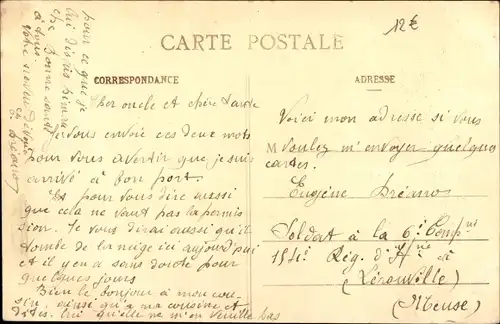 12€
CARTE POSTALE
CORRESPONDANCE
ADRESSE
Cher oncle et chère tante
je vous envoie ces deux mots
pour vous avertir que je suis
arrivé à bon port.
Et pour vous dire aussi
que cela ne vaut pas la permis
sion. Je vous dirai aussi qu'il
tombe de la neige ici aujourd'hui
et il y en a sans doute pour
quelques jours
Bien le bonjour à mon cou
sin, ainsi qu'a ma cousine et
dites lui qu'elle ne m'en veuille pas
pour ce que je
lui disais
Bonne santé
à tous.
Votre neveu
Voici mon adresse si vous
M voulez m'envoyer quelques
cartes.
Eugène Dréano
Soldat à la 6e Compnie
154e Rég. d'Infrie de
Lérouville
(Meuse)